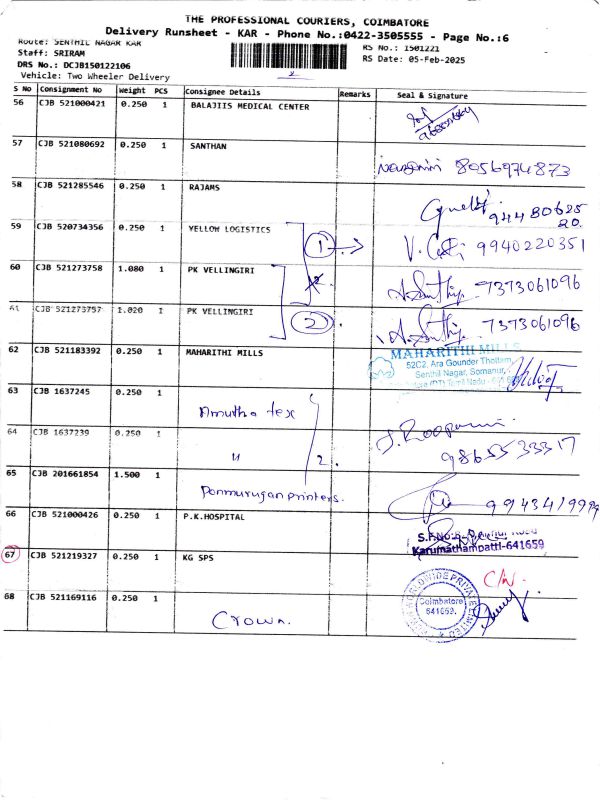 THE PROFESSIONAL COURIERS, COIMBATORE
Delivery Runsheet - KAR - Phone No.:0422-3505555 - Page No.:6
Route: SENTHIL NAGAR KAR
Staff: SRIRAM
DRS No.: DCJB150122106
Vehicle: Two Wheeler Delivery
RS No.: 1501221
RS Date: 05-Feb-2025
2
S No Consignment No Weight PCS Consignee Details Remarks Seal & Signature
56 CJB 521000421 0.250 1 BALAJIIS MEDICAL CENTER
57 CJB 521080692 0.250 1 SANTHAN 8056974873
58 CJB 521285546 0.250 1 RAJAMS
59 CJB 520734356 0.250 1 YELLOW LOGISTICS 1 9940220351
60 CJB 521273758 1.080 1 PK VELLINGIRI 7373061096
61 CJB 521273757 1.020 1 PK VELLINGIRI 2 7373061096
62 CJB 521183392 0.250 1 MAHARITHI MILLS
MAHARITHI MILLS
52C2, Ara Gounder Thottam,
Senthil Nagar, Somanur,
63 CJB 1637245 0.250 1 Amutha tex
64 CJB 1637239 0.250 1 " 2. 9865533317
65 CJB 201661854 1.500 1 Ponmurugan printers. 9943419999
66 CJB 521000426 0.250 1 P.K.HOSPITAL
Karumathampatti-641659
67 CJB 521219327 0.250 1 KG SPS
68 CJB 521169116 0.250 1 Crown.
Coimbatore
641659.